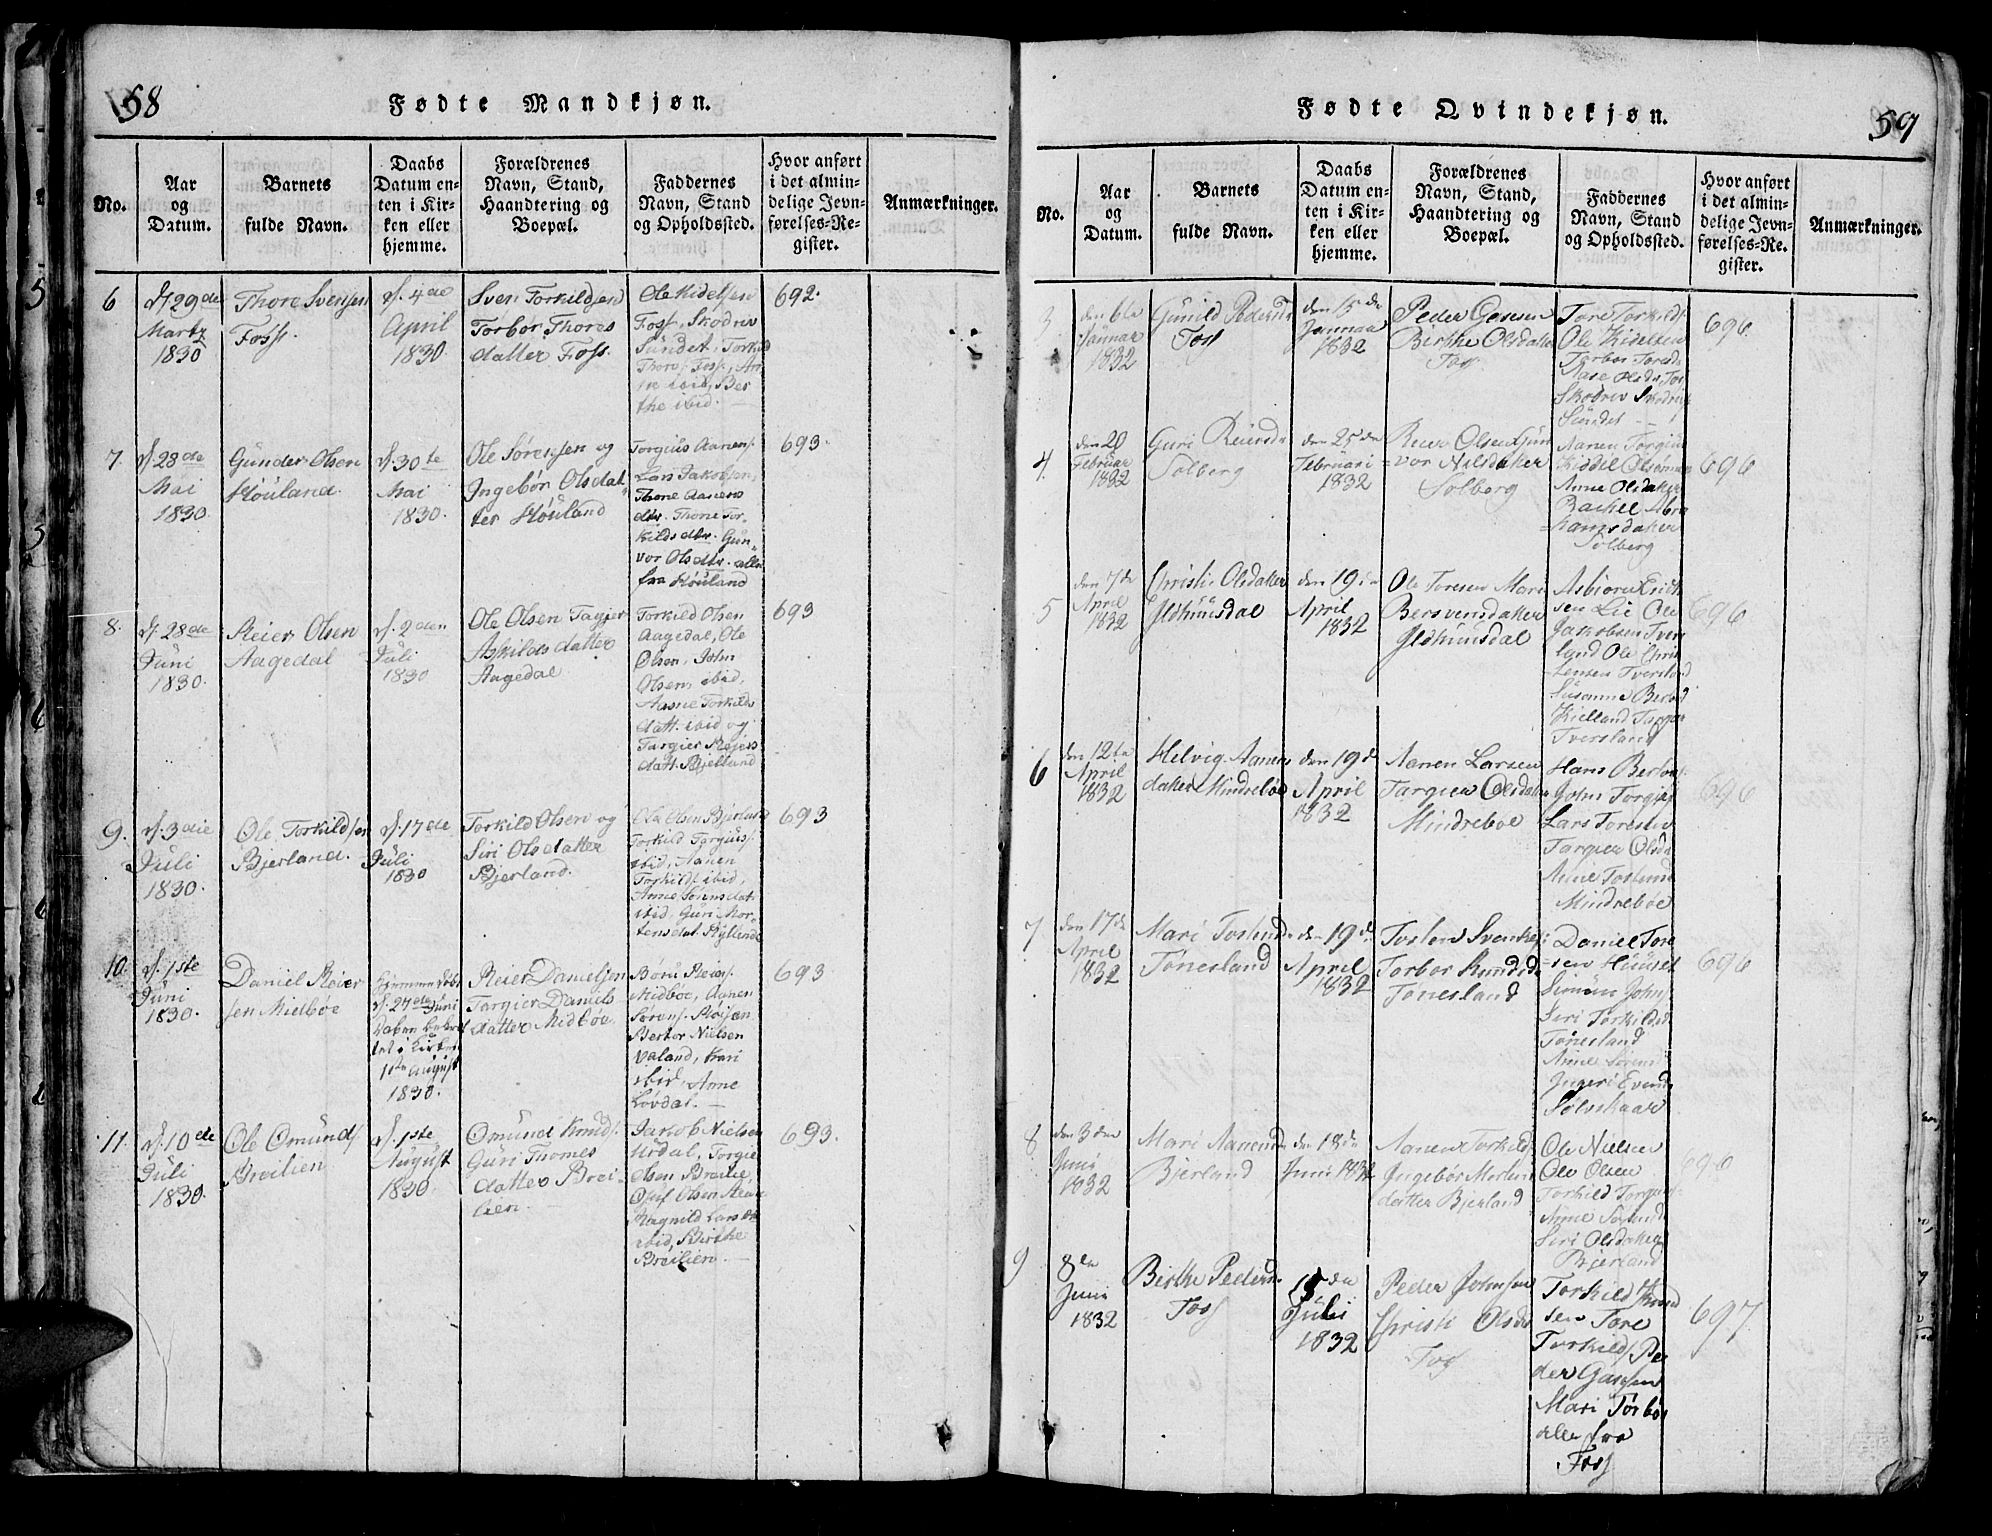 58
Fødte Mandkjøn.
No.
Aar
og
Datum.
Barnets
fulde Navn.
Daabs
Datum en-
ten i Kir-
ken eller
hjemme.
Forældrenes
Navn, Stand,
Haandtering og
Boepæl.
Faddernes
Navn, Stand
og Opholdssted.
Hvor anført
i det almin-
delige Jevn-
førelses-Re-
gister.
Anmærkninger.
6
d. 29de
Martz
1830
Thore Svensen
Foss.
d. 4de
April
1830.
Sven Torkildsen
Torbor Thores
datter Foss.
Ole Kidelsen
Foss, Skodriv
Sundet, Torkild
Thors. Foss, An
ne ibid, Ber
the ibid.
692.
7.
d. 28de
Mai
1830.
Gunder Olsen
Høuland.
d. 30te
Mai
1830.
Ole Sørensen og
Ingebor Olsdat
ter Høuland
Torgius Aanens.
Lars Jakobsen,
Thone Aanens
dtr. Thone Tor-
kilds dtr. Gun-
vor Olsdtr. alle
fra Høuland
693.
8.
d. 28de
Juni
1830.
Reier Olsen
Aagedal
d. 2den
Juli
1830
Ole Olsen Tagjer
Askilds datter
Aagedal
Torkild Olsen
Aagedal, Ole
Olsen, John
Olsen, ibid,
Aasne Torkilds
datt. ibid og
Targier Reiers
datt. Bjelland
693
9.
d. 3die
Juli
1830.
Ole Torkildsen
Bjerland.
d. 17de
Juli
1830
Torkild Olsen og
Siri Olsdatter
Bjerland.
Ole Olsen Bjerland
Torkild Targius.
ibid, Aanen
Torkilds. ibid,
Anne Sørensdat
ibid, Guri Mor-
tensdat.
693
10.
d. 1ste
Juni
1830.
Daniel Reier
sen Midbøe
Hjemme døbt
d. 27de Juni
Daaben bekræf
tet i Kirken
1ste August
1830.
Reier Danielsen
Targier Daniels
datter Midbøe.
Børu Reiers.
Midbøe, Aanen
Sørens.
Berthor Nielsen
Valand, Kari
ibid, Anne
Lovdal.
693
11.
d. 10de
Juli
1830.
Ole Omunds.
Breilien
d. 1ste
August
1830.
Omund Knuds.
Guri Thomes
datter Brei
lien.
Jakob Nielsen
Urdal, Torgie
Olsen Breilie,
Olsen
Ragnild Lars dt
ibid, Birthe
Breilien.
693.
59
Fødte Qvindekjøn.
No.
Aar
og
Datum.
Barnets
fulde Navn.
Daabs
Datum en-
ten i Kir-
ken eller
hjemme.
Forældrenes
Navn, Stand,
Haandtering og
Boepæl.
Faddernes
Navn, Stand
og Opholdssted.
Hvor anført
i det almin-
delige Jevn-
førelses-Re-
gister.
Anmærkninger.
3
den 6te
Januar
1832
Gunild Pedersd.
Fos
den 15de
Januar
1832
Peder Gosesen
Birthe Olsdater
Fos
Tore Torkilds.
Ole Kidelsen
Torbor Toresd.
Aase Olsdr. Fos
Skodriv Skodriv
Sundet
696
4.
den 20
Februar
1832
Guri Reiersd.
Solberg
den 25de
Februari
1832
Reier Olsen Gun
vor Nilsdatter
Solberg
Aanen Torgius
Kiddil
Anne Olsdater
Rachel Abra
hamsdater
Solberg
696
5
den 7de
April
1832
Christi Olsdater
Ildhuusdal
den 19de
April
1832
Ole Toresen Mari
Bersvensdater
Ildhuusdal
Asbiorn Erich
sen Lie Ole
Jakobsen Tvers
land Ole Chris
tensen Tversland
Susanne Berod
Kielland Targier
Tversland
696
6
den 12te
April
1832
Helvig Aanens
dater Mindrebøe
den 19de
April
1832
Aanen Larsen
Targier Olsdater
Mindreboe
Hans Bertors.
John Torgies
Lars Toresen
Targier Olsd.
Anne Toslund
Mindrebøe
696
7
den 17de
April
1832
Mari Tostensd.
Tønesland
den 19de
April
1832
Tosten Svenkes.
Torbor Knudsd.
Tønesland
Daniel Tore
sen Huuset
Simon Johns.
Siri Torkildsd.
Tønesland
Anne Sørensd.
Ingeri Evensd.
Solvskaar
696
8
den 3den
Juni
1832
Mari Aanensd.
Bjerland
den 18de
Juni 1832
Aanen Torkilds.
Ingebor Mortens
datter Bjerland
Ole Nielsen
Ole Olsen
Torkild Torgius.
Anne Sørensd.
Siri Olsdater
Bjerland
696
9
8de
Juni
1832
Birthe Pedersd.
Fos
15de
Juli
1832
Peder Johnsen
Christi Olsdr
Fos
Torkild Knud
sen Tore
Torkilds. Pe
der Gosesen
Mari Torbor
alle fra
Fos
697